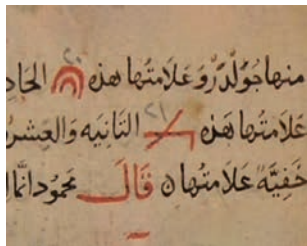 منها جولدر وعلامتها هذه ٢٠ الحاد
علامتها هذه ٢١ الثانيه والعشر
خفيّة علامتها ن قال محمود انما